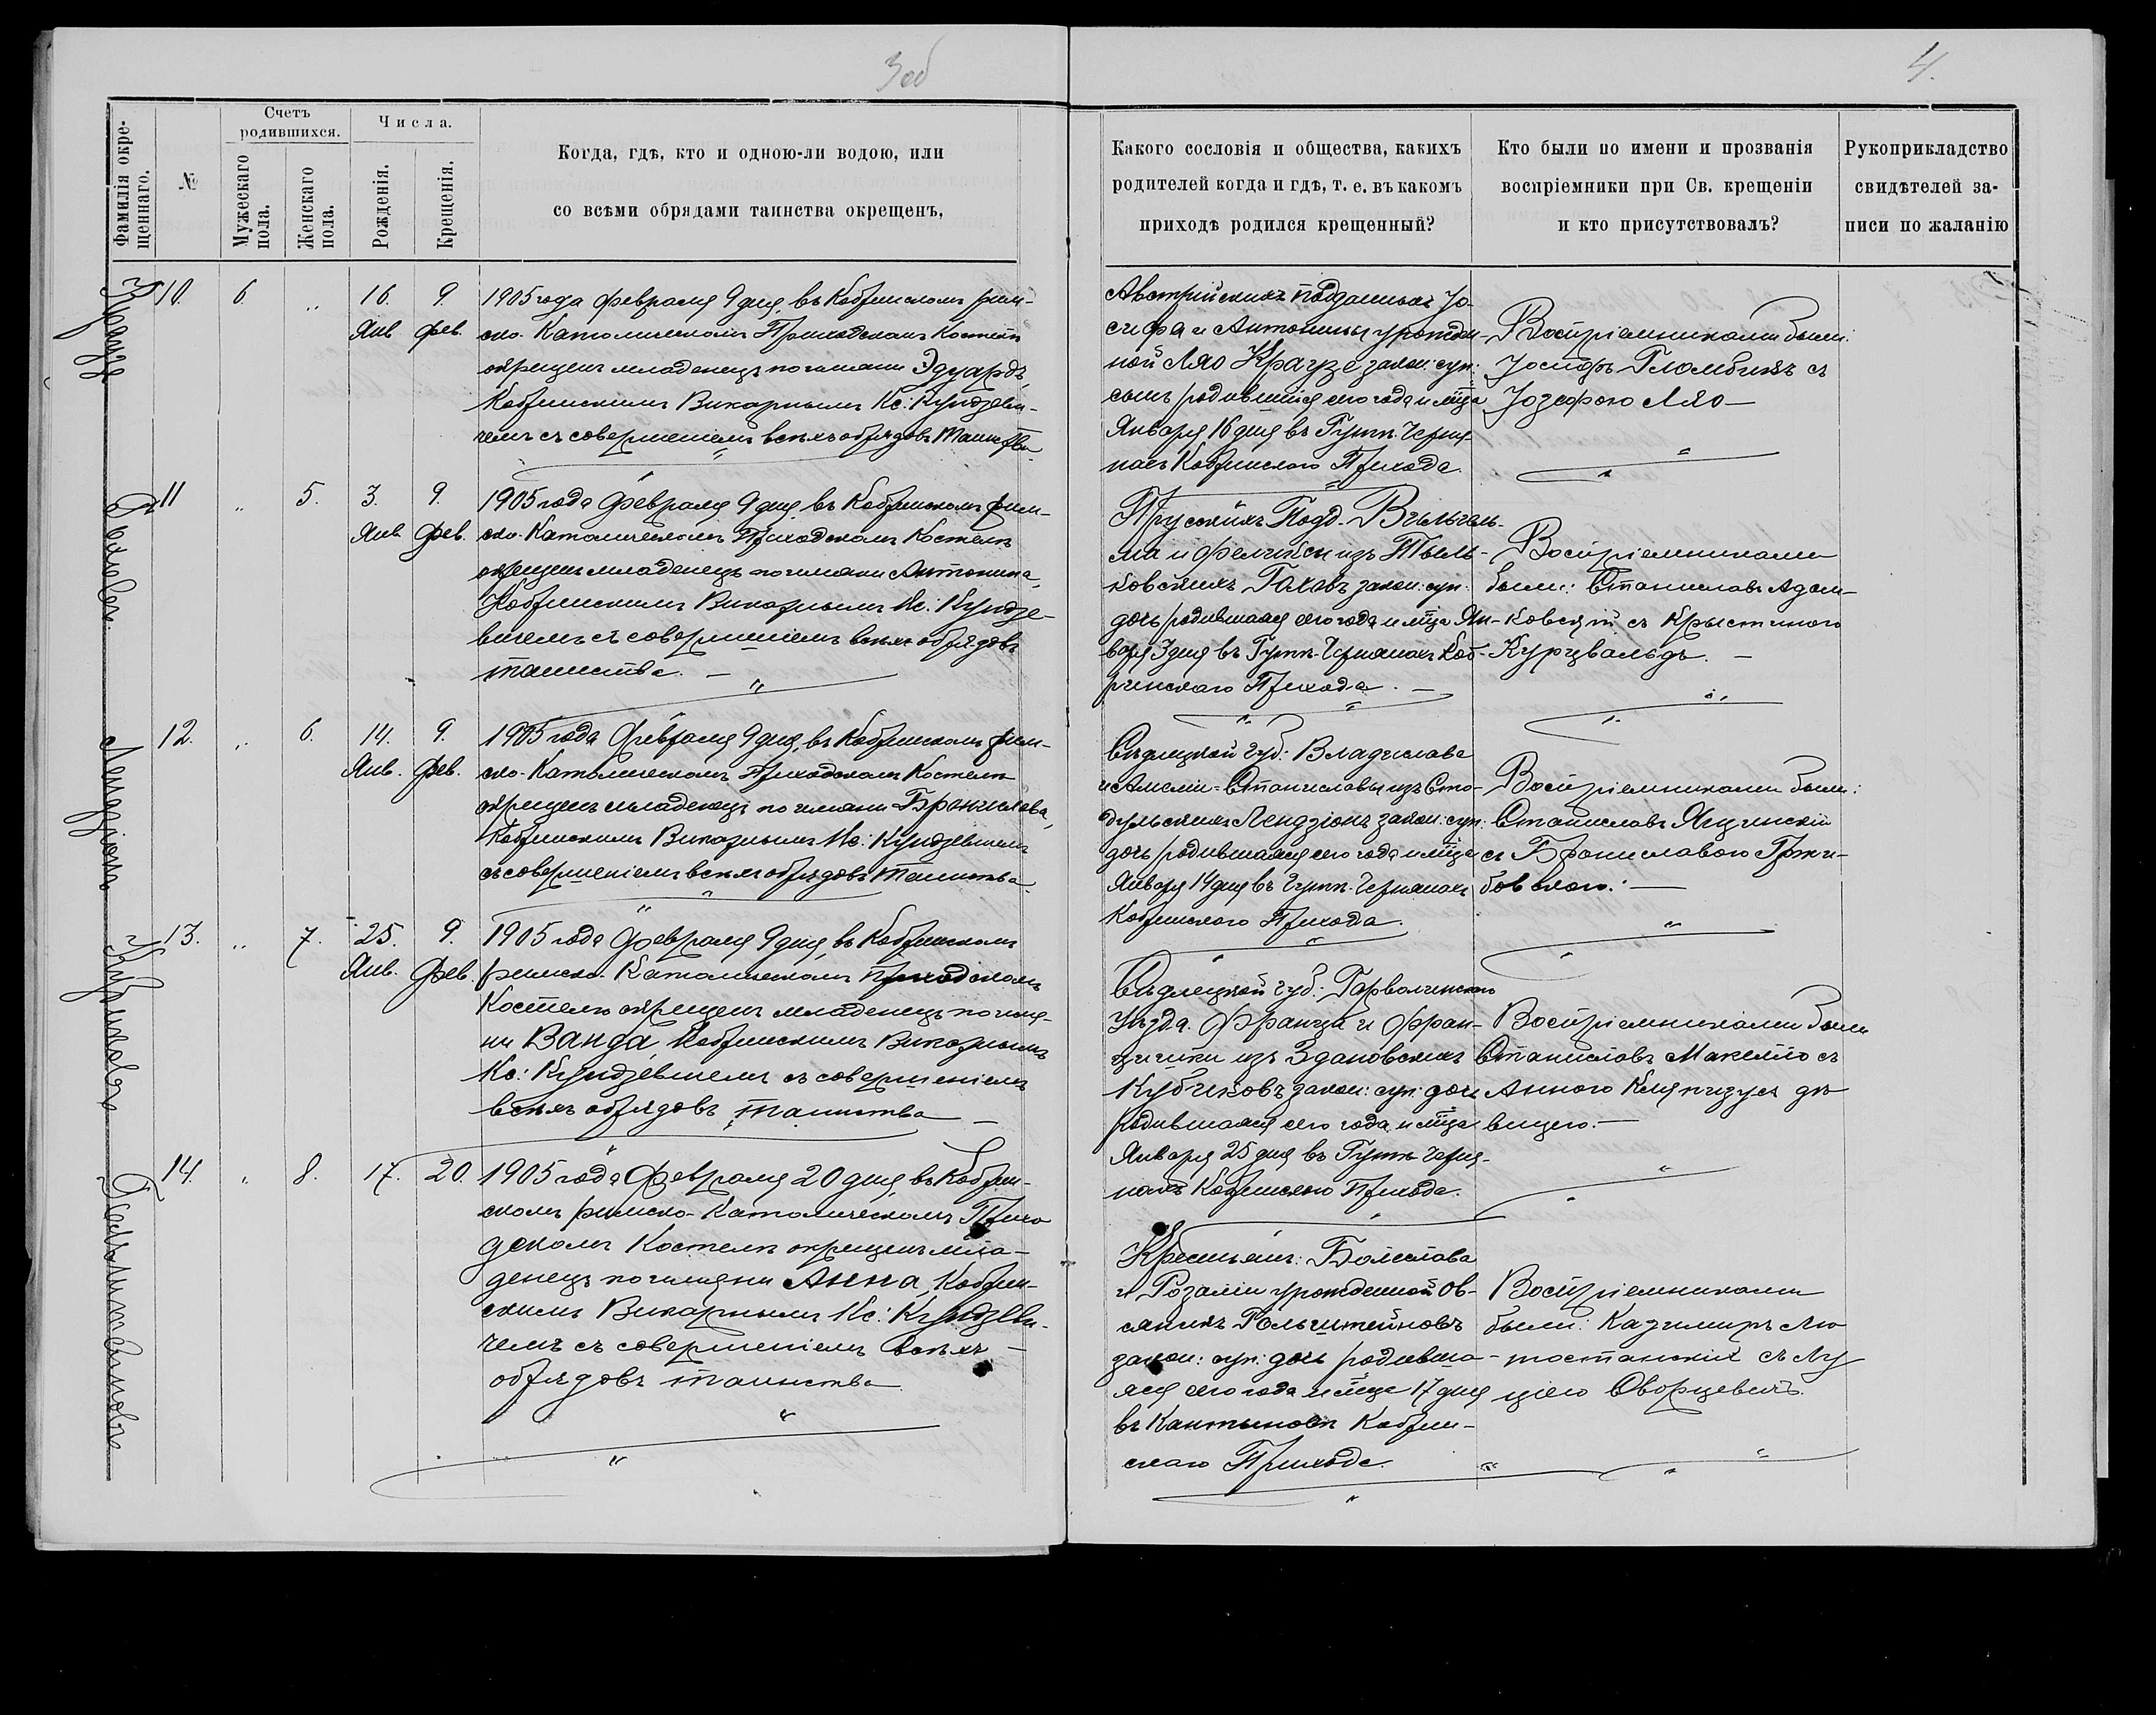 3об
4.
Фамилія окре-
щеннаго.
№
Счетъ
родившихся.
Мужескаго
пола.
Женскаго
пола.
Числа.
Рожденія.
Крещенія.
Когда, гдѣ, кто и одною-ли водою, или
со всѣми обрядами таинства окрещенъ,
Какого сословія и общества, какихъ
родителей когда и гдѣ, т. е. въ какомъ
приходѣ родился крещенный?
Кто были по имени и прозванія
воспріемники при Св. крещеніи
и кто присутствовалъ?
Рукоприкладство
свидѣтелей за-
писи по жаланію
Краузе
10. 6. „ 16. 9.
Янв. Фев.
1905 года февраля 9 дня, въ Кобринскомъ рим-
ско-Католическомъ Приходскомъ Костелѣ
окрещенъ младенецъ по имени Эдуардъ,
Кобринскимъ Викарнымъ Кс: Кундзеви-
чемъ съ совершеніемъ всѣхъ обрядовъ Таинства
Австрійскихъ подданныхъ Іо-
сифа и Антонины урожден-
ной Ляо Краузе закон: суп:
сынъ родившійся сего года и мѣца
Января 16 дня въ Гутт. Черня-
нахъ Кобринскаго Прихода.
Воспріемниками были:
Іосифъ Гломбикъ съ
Іозефою Ляо —
11 „ 5. 3. 9.
Янв. Фев.
1905 года Февраля 9 дня, въ Кобринскомъ рим-
ско-Католическомъ Приходскомъ Костелѣ
окрещенъ младенецъ по имени Антонина,
Кобринскимъ Викарнымъ Кс: Кундзе-
вичемъ съ совершеніемъ всѣхъ обрядовъ
таинства. —
Прусскихъ Подд. Вильгель-
ма и
ковскихъ Гаховъ закон: суп:
дочь родившаяся сего года и мѣца Ян-
варя 3 дня въ Гутт. Чернянахъ Коб-
ринскаго Прихода. —
Воспріемниками
были: Станиславъ Адам-
ковскій съ Крыстиною
Курцвальдъ. —
Лендзіонъ
12. „ 6. 14. 9.
Янв. Фев.
1905 года Февраля 9 дня, въ Кобринскомъ рим-
ско-Католическомъ Приходскомъ Костелѣ
окрещенъ младенецъ по имени Бронислава,
Кобринскимъ Викарнымъ Кс: Кундзевичемъ
съ совершеніемъ всѣхъ обрядовъ Таинства.
Сѣдлецкой губ: Владислава
и Амеліи-Станиславы изъ Сто-
дульскихъ Лендзіонъ закон: суп:
дочь родившаяся сего года и мѣца
Января 14 дня въ Гутт. Чернянахъ
Кобринскаго Прихода.
Воспріемниками были:
Станиславъ Ящинскій
съ Брониславою Гржи-
бовскою. —
Кубиковъ
13. „ 7. 25. 9.
Янв. Фев.
1905 года Февраля 9 дня, въ Кобринскомъ
римско-Католическомъ Приходскомъ
Костелѣ окрещенъ младенецъ по име-
ни Ванда, Кобринскимъ Викарнымъ
Кс: Кундзевичемъ съ совершеніемъ
всѣхъ обрядовъ таинства —
Сѣдлецкой губ: Гарволинскаго
Уѣзда. Франца и Фран-
цишки изъ Здановскихъ
Кубиковъ закон: суп: дочь
родившаяся сего года и мѣца
Января 25 дня въ Гутт. Черня-
нахъ Кобринскаго Прихода.
Воспріемниками были
Станиславъ Макелло съ
Анною дѣ
вицею. —
Гольштейновъ
14. „ 8. 17. 20.
1905 года Февраля 20 дня, въ Кобрин-
скомъ римско-Католическомъ Прихо
дскомъ Костелѣ окрещенъ мла-
денецъ по имени Анна, Кобрин-
скимъ Викарнымъ Кс: Кундзеви-
чемъ съ совершеніемъ всѣхъ —
обрядовъ таинства
Крестьянъ: Болеслава
и Розаліи урожденной Ов-
сяникъ Гольштейновъ
закон: суп: дочь родивша-
яся сего года и мѣца 17 дня
въ Кобрин-
скаго Прихода.
Воспріемниками
были: Казимиръ Лю
тостанскій съ Лу
ціею Сворцевичъ.